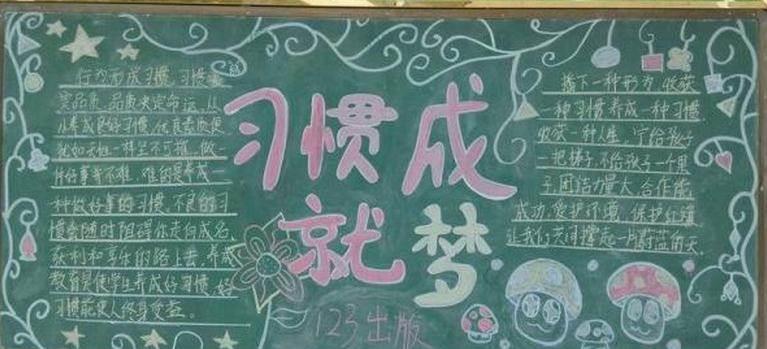 行为形成习惯,习惯决
定品质,品质决定命运,从
小养成良好习惯,优良素质便
犹如天性一样坚不可摧,做一
件好事并不难,难的是养成一
种做好事的习惯,不良的习
惯会随时阻碍你走向成名、
获利和享乐的路上去,养成
教育是使学生养成好习惯,好
习惯能使人终身受益。
习惯成
就梦
123出版
播下一种形为,收获
一种习惯,养成一种习惯,
收获一种人生,宁给孩子
一把梯子,不给孩子一个果
子,团结力量大,合作能
成功,爱护环境,保护红领
让我们共同撑起一片蔚蓝的天